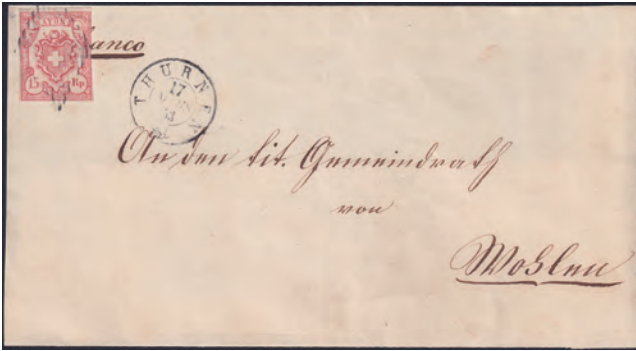 RAYON
15 Rp
Franco
THURNEN
17
An den tit. Gemeindrath
von
Wohlen